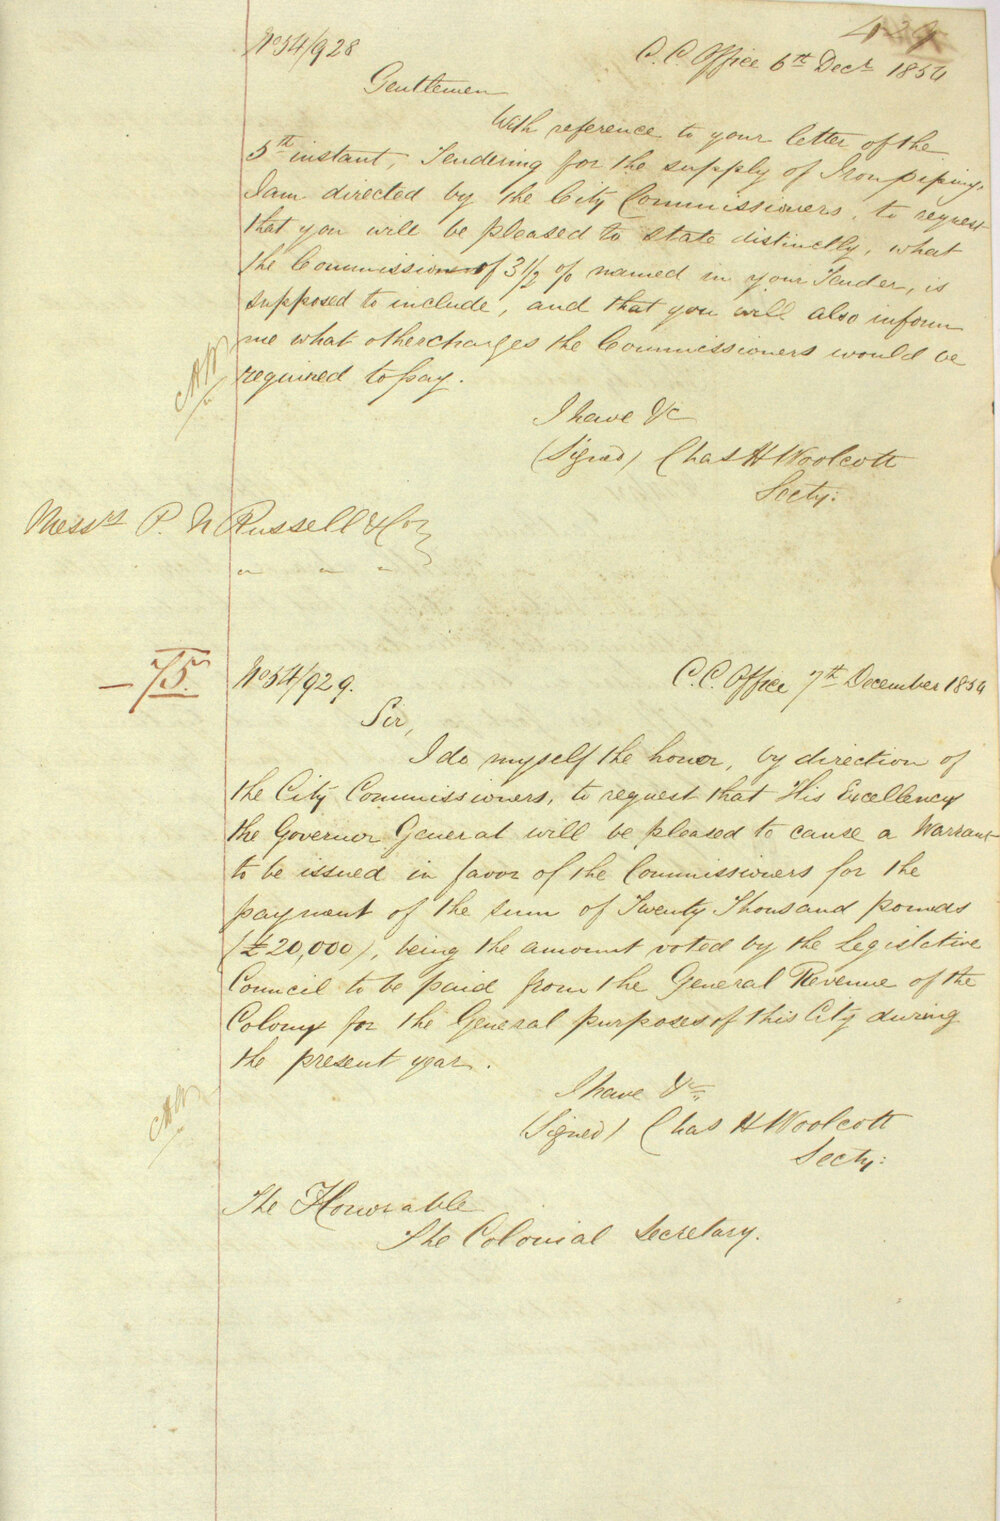 429
No 54/928
C.C. Office 6th Decr 1854
Gentlemen
With reference to your letter of the
5th instant, Tendering for the supply of Iron piping,
I am directed by the City Commissioners, to request
that you will be pleased to state distinctly, what
the Commission of 3 1/2 o/o named in your Tender, is
supposed to include, and that you will also inform
me what other charges the Commissioners would be
required to pay.
I have &c
(Signed) Chas H Woolcott
Secty:
Messrs P. N Russell & Co
" " "
75.
No 54/929.
C.C. Office 7th December 1854
Sir,
I do myself the honor, by direction of
the City Commissioners, to request that His Excellency
the Governor General will be pleased to cause a Warrant
to be issued in favor of the Commissioners for the
payment of the sum of Twenty Thousand pounds
(£20,000), being the amount voted by the Legislative
Council to be paid from the General Revenue of the
Colony for the General purposes of this City during
the present year.
I have &c
(Signed) Chas H Woolcott
Secty:
The Honorable
The Colonial Secretary.